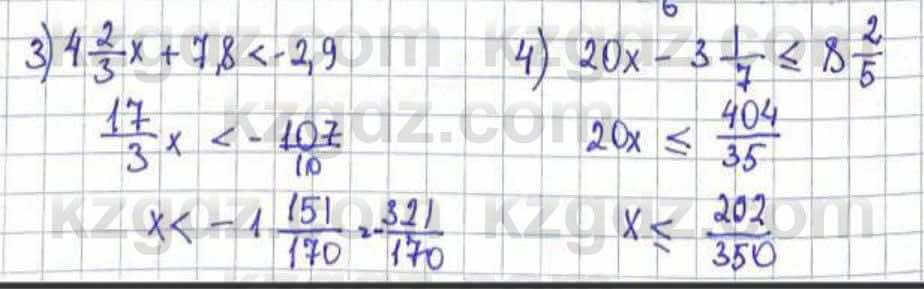 6
3) 4 2/3 x + 7,8 < -2,9
17/3 x < - 107/10
x < - 1 151/170 = - 321/170
4) 20x - 3 1/7 ≤ 8 2/5
20x ≤ 404/35
x ≤ 202/350
kzgdz.com
kzgdz.com
kzgdz.com
kzgdz.com